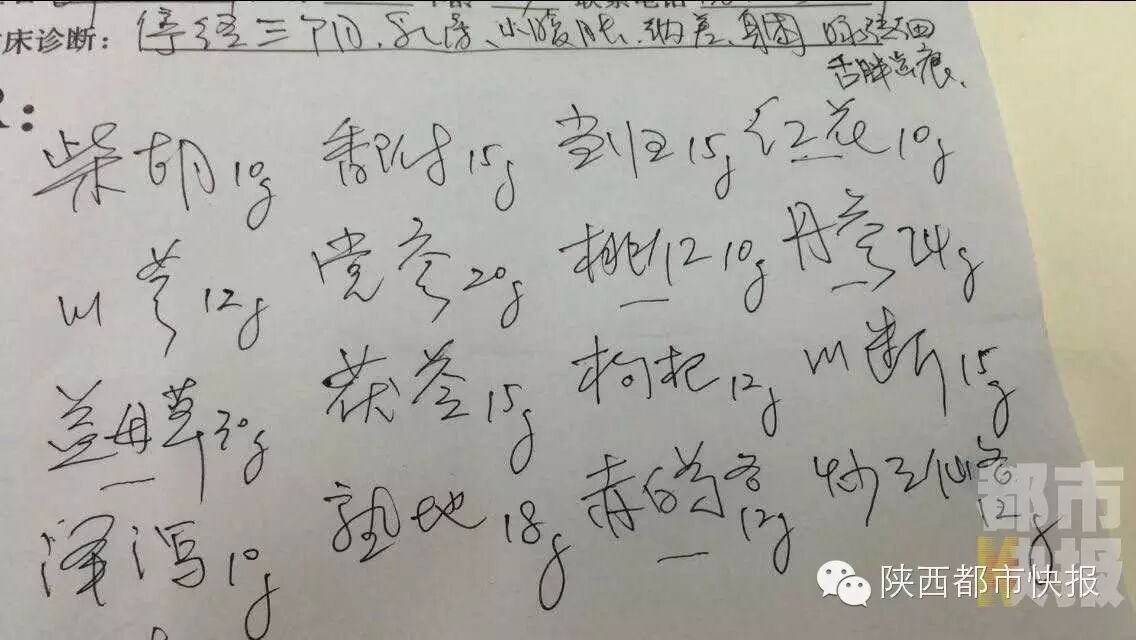 床诊断：停经三个月，乳房、小腹胀、纳差、身困 脉弦细
舌胖齿痕、
柴胡10g 香附15g 当归15g 红花10g
川芎12g 党参20g 桃仁10g 丹参24g
益母草30g 茯苓15g 枸杞12g 川断15g
泽泻10g 熟地18g 赤白芍各12g 炒三仙各12g
都市快报
陕西都市快报